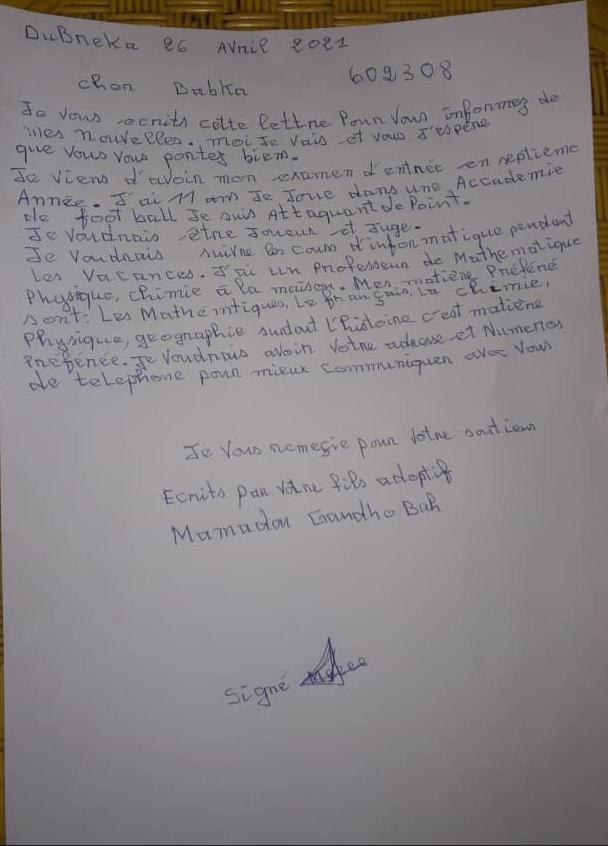 DuBreka 26 Avril 2021
602308
cher Dabka
Je vous ecrits cette lettre Pour Vous informez de
mes nouvelles. moi Je Vais et vous J'espère
que Vous Vous portez biem.
Je Viens d'avoir mon examen d'entrée en septieme
Année. J'ai 11 am Je Joue dans une Accademie
de foot ball Je suis Attaquant de Point.
Je Voudrais etre Joueur et Juge.
Je Voudrais suivre les cours d'informatique pendant
Les Vacances. J'ai un Professeur de Mathematique
Physique, chimie à la maison. Mes matière Préféré
sont: Les Mathémtiques, Le français, La chimie,
Physique, geographie surtout L'histoire c'est matière
Préférée. Je Voudrais avoir Votre adresse et Numeros
de telephone pour mieux communiquer avec Vous
Je Vous remeçie pour Votre soutiens
Ecrits par Votre fils adoptif
Mamadou Gandho Bah
Signé